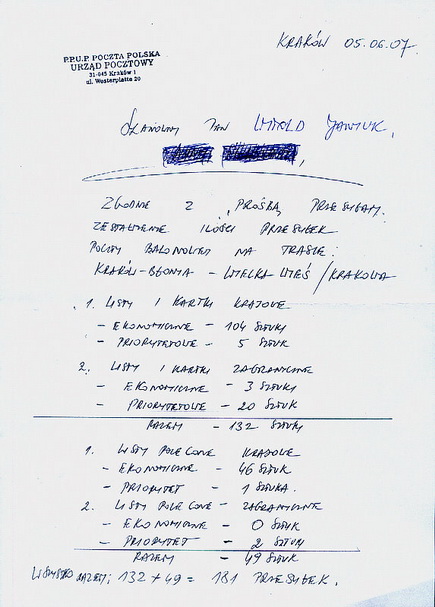 KRAKÓW 05.06.07.
P.P.U.P. POCZTA POLSKA
URZĄD POCZTOWY
31-045 Kraków 1
ul. Westerplatte 20
SZANOWNY PAN WITOLD
ZGODNIE Z PROŚBĄ, PRZESYŁAM.
ZESTAWIENIE ILOŚCI PRZESYŁEK
POCZTY BALONOWEJ NA TRASIE:
KRAKÓW-BŁONIA - WIELKA WIEŚ /KRAKOWA
1. LISTY I KARTKI KRAJOWE
- EKONOMICZNE - 104 SZTUKI
- PRIORYTETOWE - 5 SZTUK
2. LISTY I KARTKI ZAGRANICZNE
- EKONOMICZNE - 3 SZTUKI
- PRIORYTETOWE - 20 SZTUK
RAZEM - 132 SZTUKI
1. LISTY POLECONE KRAJOWE
- EKONOMICZNE - 46 SZTUK
- PRIORYTET - 1 SZTUKA.
2. LISTY POLECONE - ZAGRANICZNE
- EKONOMICZNE - 0 SZTUK
- PRIORYTET - 2 SZTUKI
RAZEM - 49 SZTUK
WSZYSTKO RAZEM; 132 + 49 = 181 PRZESYŁEK.